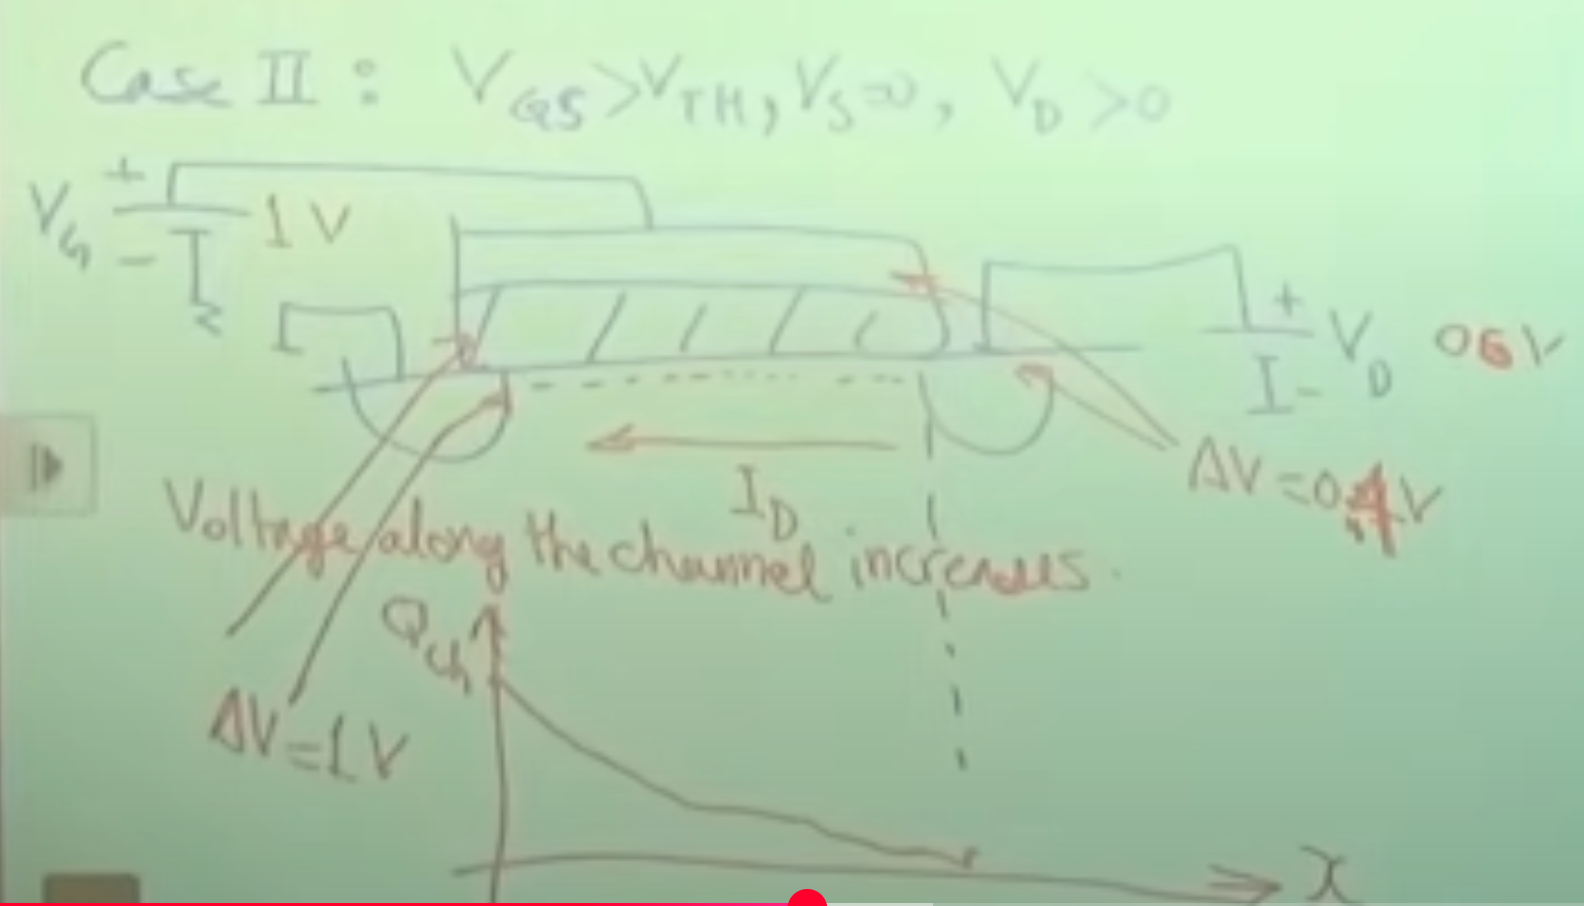 Case II : VGS>VTH, VS=0, VD>0
VG + - 1V
+ - VD 0.6V
ΔV=0.4V
ID
Voltage along the channel increases.
Qch
ΔV=1V
x